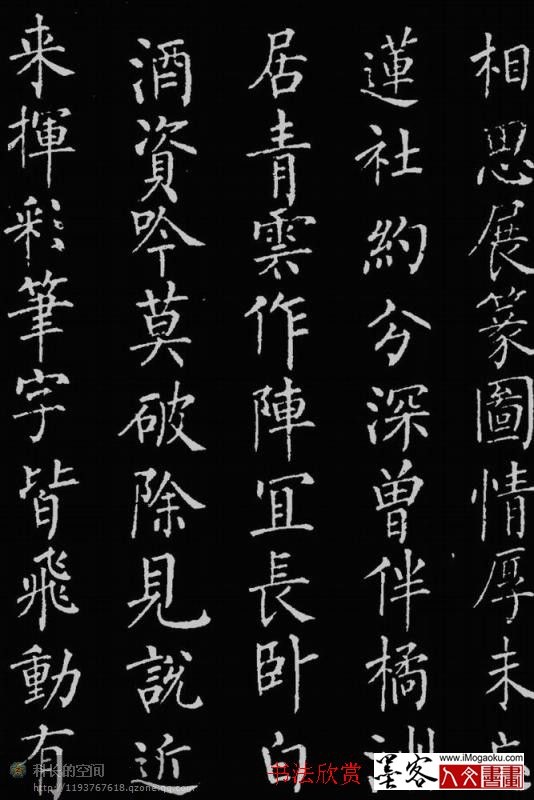 相思展篆圖情厚未
蓮社約分深曾伴橘
居青雲作陣宜長卧白
酒資吟莫破除見說近
来揮彩筆字皆飛動有
科长的空间
http://1193767618.qzone.qq.com
书法欣赏
墨客
www.iMogaoku.com
人文書畫